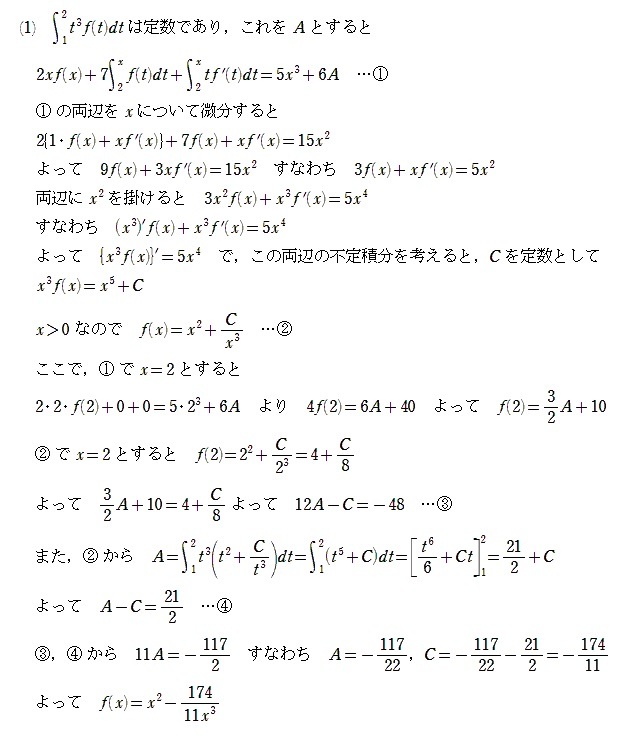 (1) ∫₁² t³f(t)dt は定数であり，これを A とすると
2xf(x)+7∫₂ˣ f(t)dt+∫₂ˣ tf′(t)dt=5x³+6A …①
① の両辺を x について微分すると
2{1・f(x)+xf′(x)}+7f(x)+xf′(x)=15x²
よって 9f(x)+3xf′(x)=15x² すなわち 3f(x)+xf′(x)=5x²
両辺に x² を掛けると 3x²f(x)+x³f′(x)=5x⁴
すなわち (x³)′f(x)+x³f′(x)=5x⁴
よって {x³f(x)}′=5x⁴ で，この両辺の不定積分を考えると，C を定数として
x³f(x)=x⁵+C
x>0 なので f(x)=x²+C/x³ …②
ここで，① で x=2 とすると
2・2・f(2)+0+0=5・2³+6A より 4f(2)=6A+40 よって f(2)=3/2 A+10
② で x=2 とすると f(2)=2²+C/2³=4+C/8
よって 3/2 A+10=4+C/8 よって 12A−C=−48 …③
また，② から A=∫₁² t³(t²+C/t³)dt=∫₁²(t⁵+C)dt=[t⁶/6+Ct]₁²=21/2+C
よって A−C=21/2 …④
③，④ から 11A=−117/2 すなわち A=−117/22，C=−117/22−21/2=−174/11
よって f(x)=x²−174/11x³